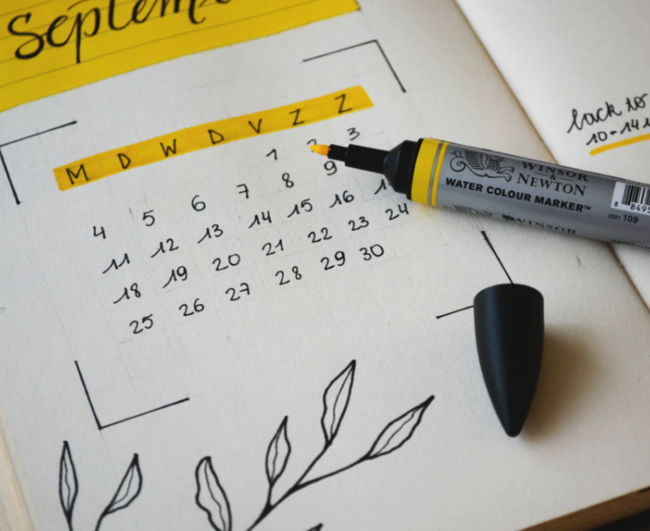 Septem
M D W D V Z Z
1 2 3
4 5 6 7 8 9
11 12 13 14 15 16 1
18 19 20 21 22 23 24
25 26 27 28 29 30
back to
10-14
WINSOR
& NEWTON
WATER COLOUR MARKER™
WINSOR
109